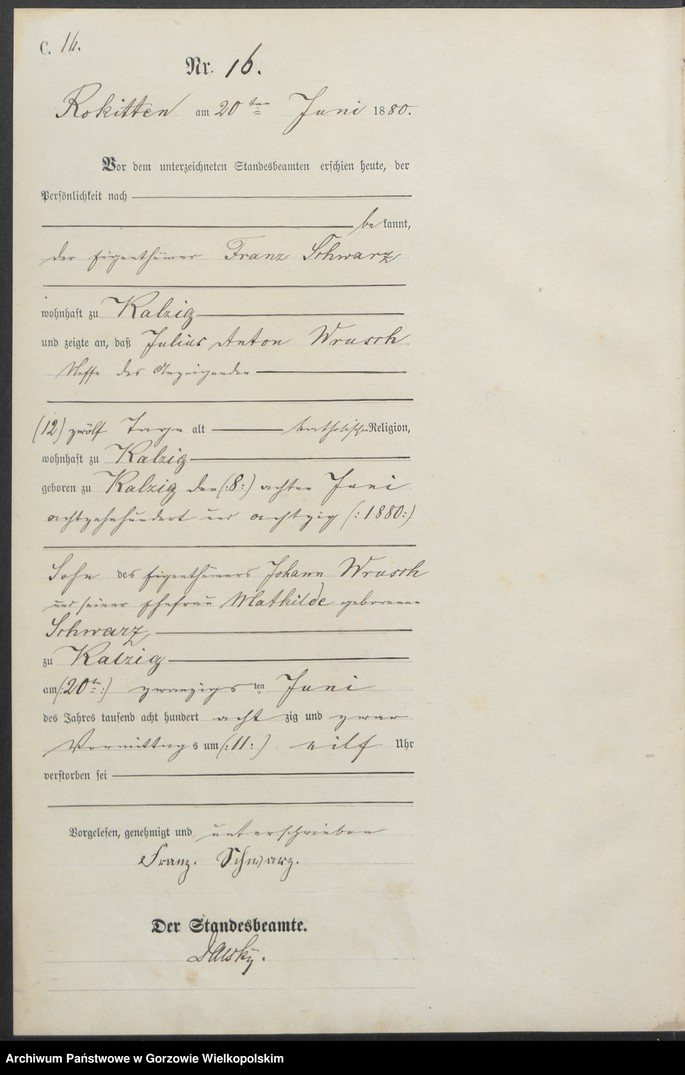 C. 16.
Nr. 16.
Rokitten am 20ten Juni 1880.
Vor dem unterzeichneten Standesbeamten erschien heute, der
Persönlichkeit nach
bekannt,
der Eigenthümer Franz Schwarz
wohnhaft zu Kalzig
und zeigte an, daß Julius Anton Wrusch
Neffe des Anzeigenden
(12) zwölf Tage alt katholischer Religion,
wohnhaft zu Kalzig
geboren zu Kalzig den (:8:) achten Juni
achtzehnhundert und achtzig (:1880:)
Sohn des Eigenthümers Johann Wrusch
und seiner Ehefrau Mathilde geborenen
Schwarz
zu Kalzig
am (:20ten:) zwanzigsten Juni
des Jahres tausend acht hundert achtzig und zwar
Vormittags um (:11:) eilf Uhr
verstorben sei
Vorgelesen, genehmigt und unterschrieben
Franz. Schwarz.
Der Standesbeamte.
Archiwum Państwowe w Gorzowie Wielkopolskim